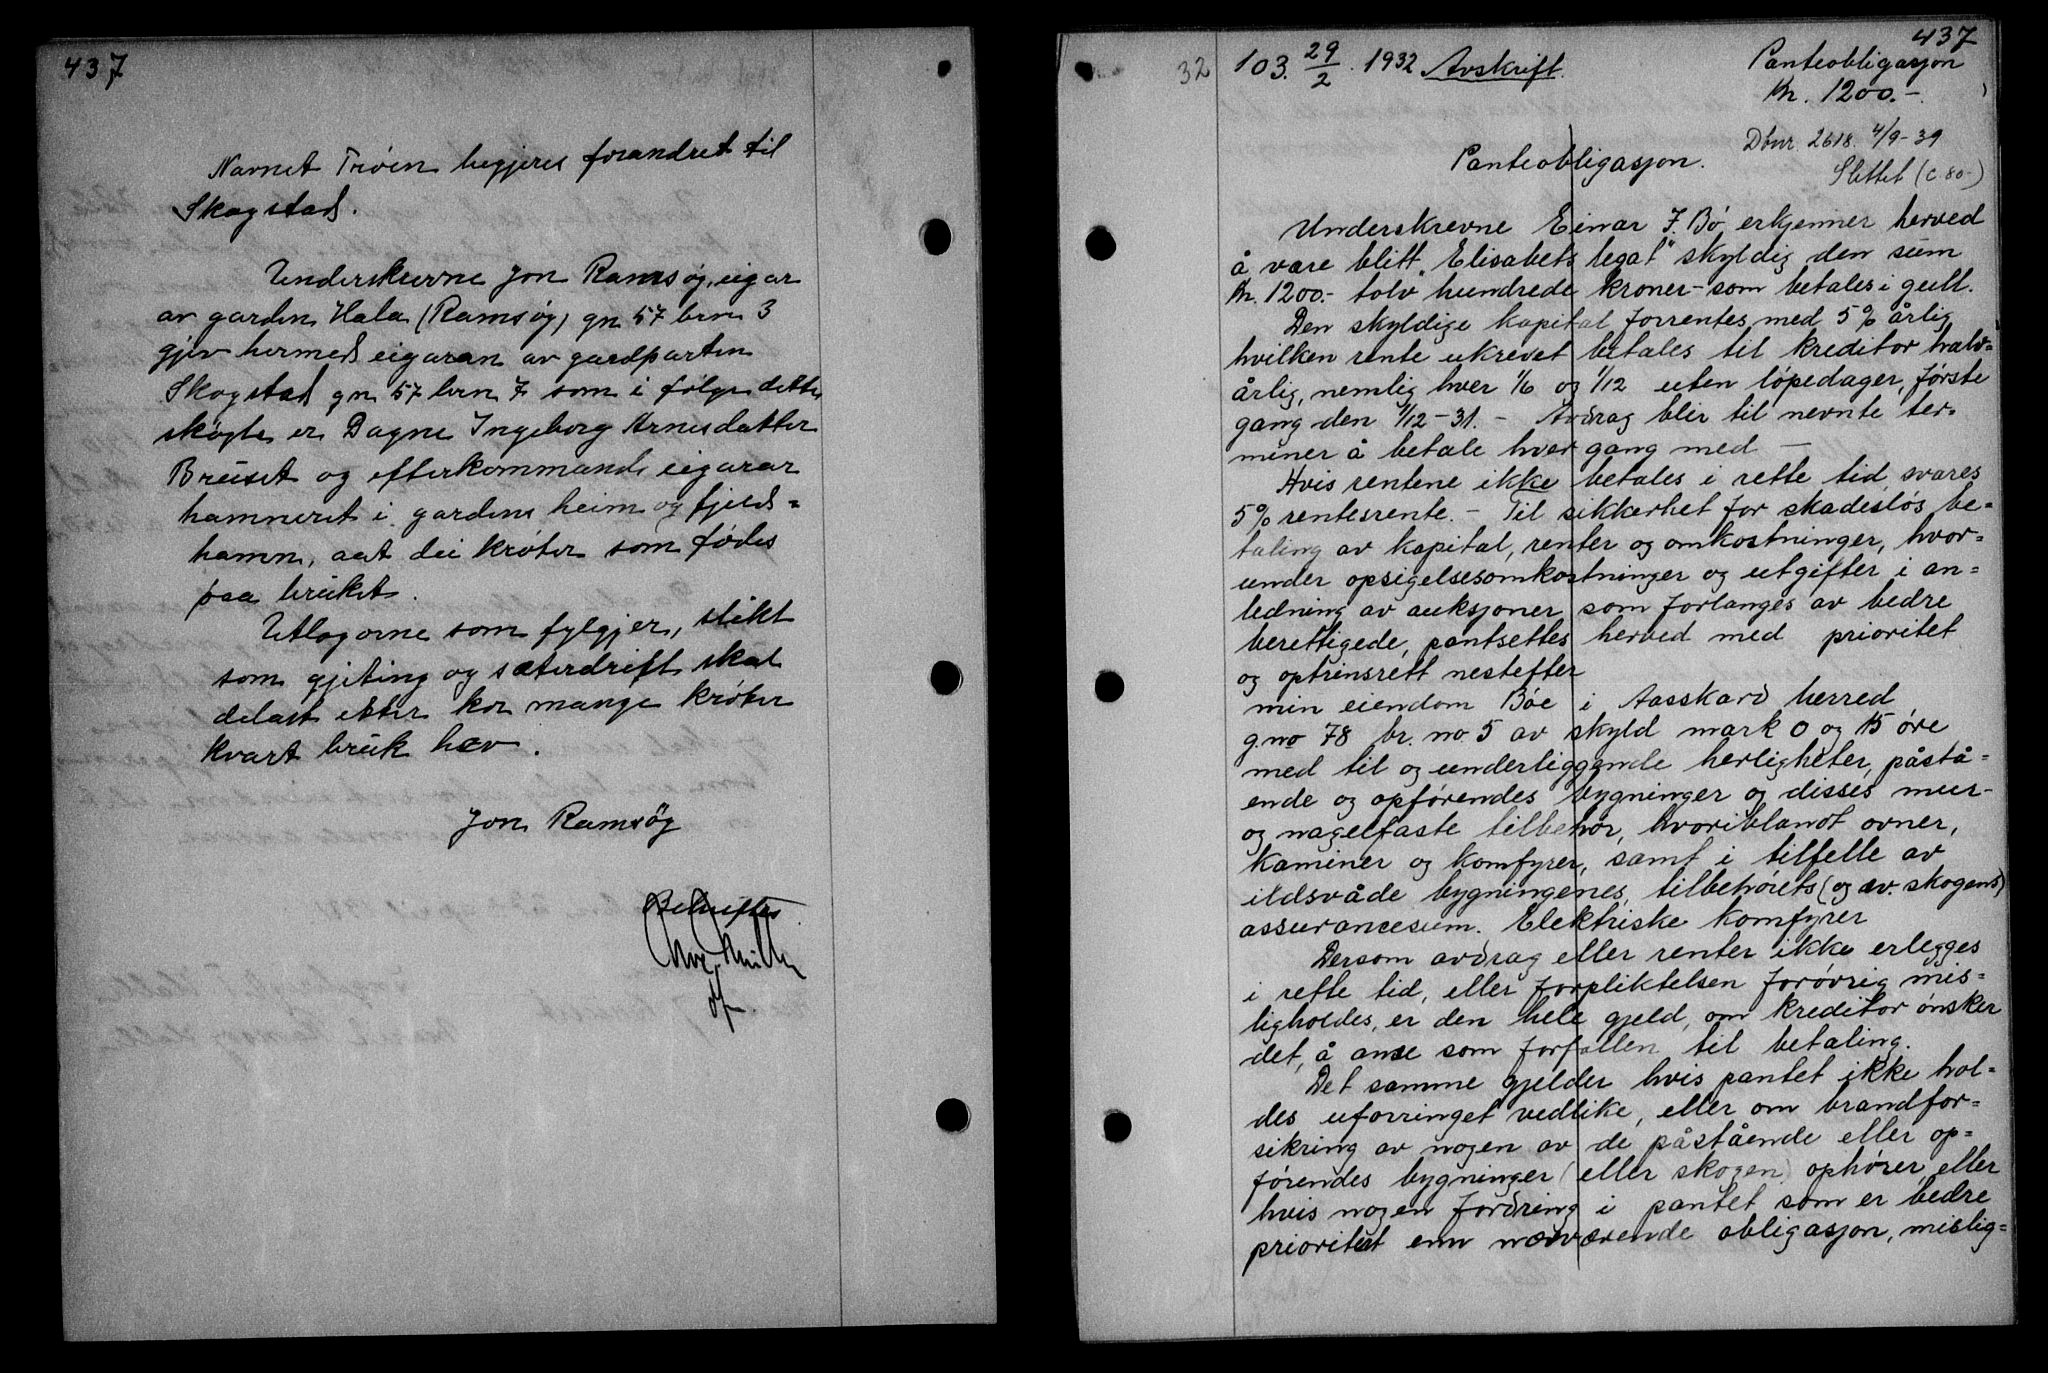 437
Navnet Trøen begjeres forandret til
Skogstad.
Underskrevne Jon Ramsøy, eigar
av garden Hala (Ramsøy) gn 57 brn 3
gjev hermed eigaren av gardparten
Skogstad gn 57 brn 7 som i følge dette
skøyte er Dagne Ingeborg Arnesdatter
Breiset og efterkommande eigarar
hamneret i gardens heim og fjeld=
hamn, aat dei krøter som fødes
paa bruket.
Utlogorne som fylgjer, slikt
som gjeting og sæterdrift skal
delast etter kor mange krøter
kvart bruk hev.
Jon Ramsøy
Bekreftes
437
32 103. 29/2 1932 Avskrift. Panteobligasjon
Kr. 1200.-
Dbnr. 2618. 4/9-39
Slettet (c. 80-)
Panteobligasjon.
Underskrevne Einar J. Bø erkjenner herved
å være blitt "Elisabets legat" skyldig den sum
Kr. 1200.- tolv hundrede kroner- som betales i gull.
Den skyldige kapital forrentes med 5% årlig
hvilken rente ukrevet betales til kreditor halv=
årlig, nemlig hver 1/6 og 1/12 uten løpedager, første
gang den 1/12-31. - Avdrag blir til nevnte ter-
miner å betale hver gang med —
Hvis rentene ikke betales i rette tid, svares
5% rentesrente. - Til sikkerhet for skadesløs be=
taling av kapital, renter og omkostninger, hvor=
under opsigelsesomkostninger og utgifter i an=
ledning av auksjoner som forlanges av bedre
berettigede, pantsettes herved med prioritet
og optrinsrett nestefter
min eiendom Bøe i Aasskard herred
g.no 78 br. no. 5 av skyld mark 0 og 15 øre
med til og underliggende herligheter, påstå=
ende og opførendes bygninger og disses mur-
og nagelfaste tilbehør, hvoriblandt ovner,
kaminer og komfyrer, samt i tilfelle av
ildsvåde bygningenes, tilbehørets (og av. skogens)
assurancesum. Elektriske komfyrer
Dersom avdrag eller renter ikke erlegges
i rette tid, eller forpliktelsen forøvrig mis=
ligholdes, er den hele gjeld, om kreditor ønsker
det, å anse som forfallen til betaling.
Det samme gjelder hvis pantet ikke hol=
des uforringet vedlike, eller om brandfor=
sikring av nogen av de påstående eller op=
førendes bygninger (eller skogen) ophører, eller
hvis nogen fordring i pantet som er bedre
prioritert enn nærværende obligasjon, mislig=